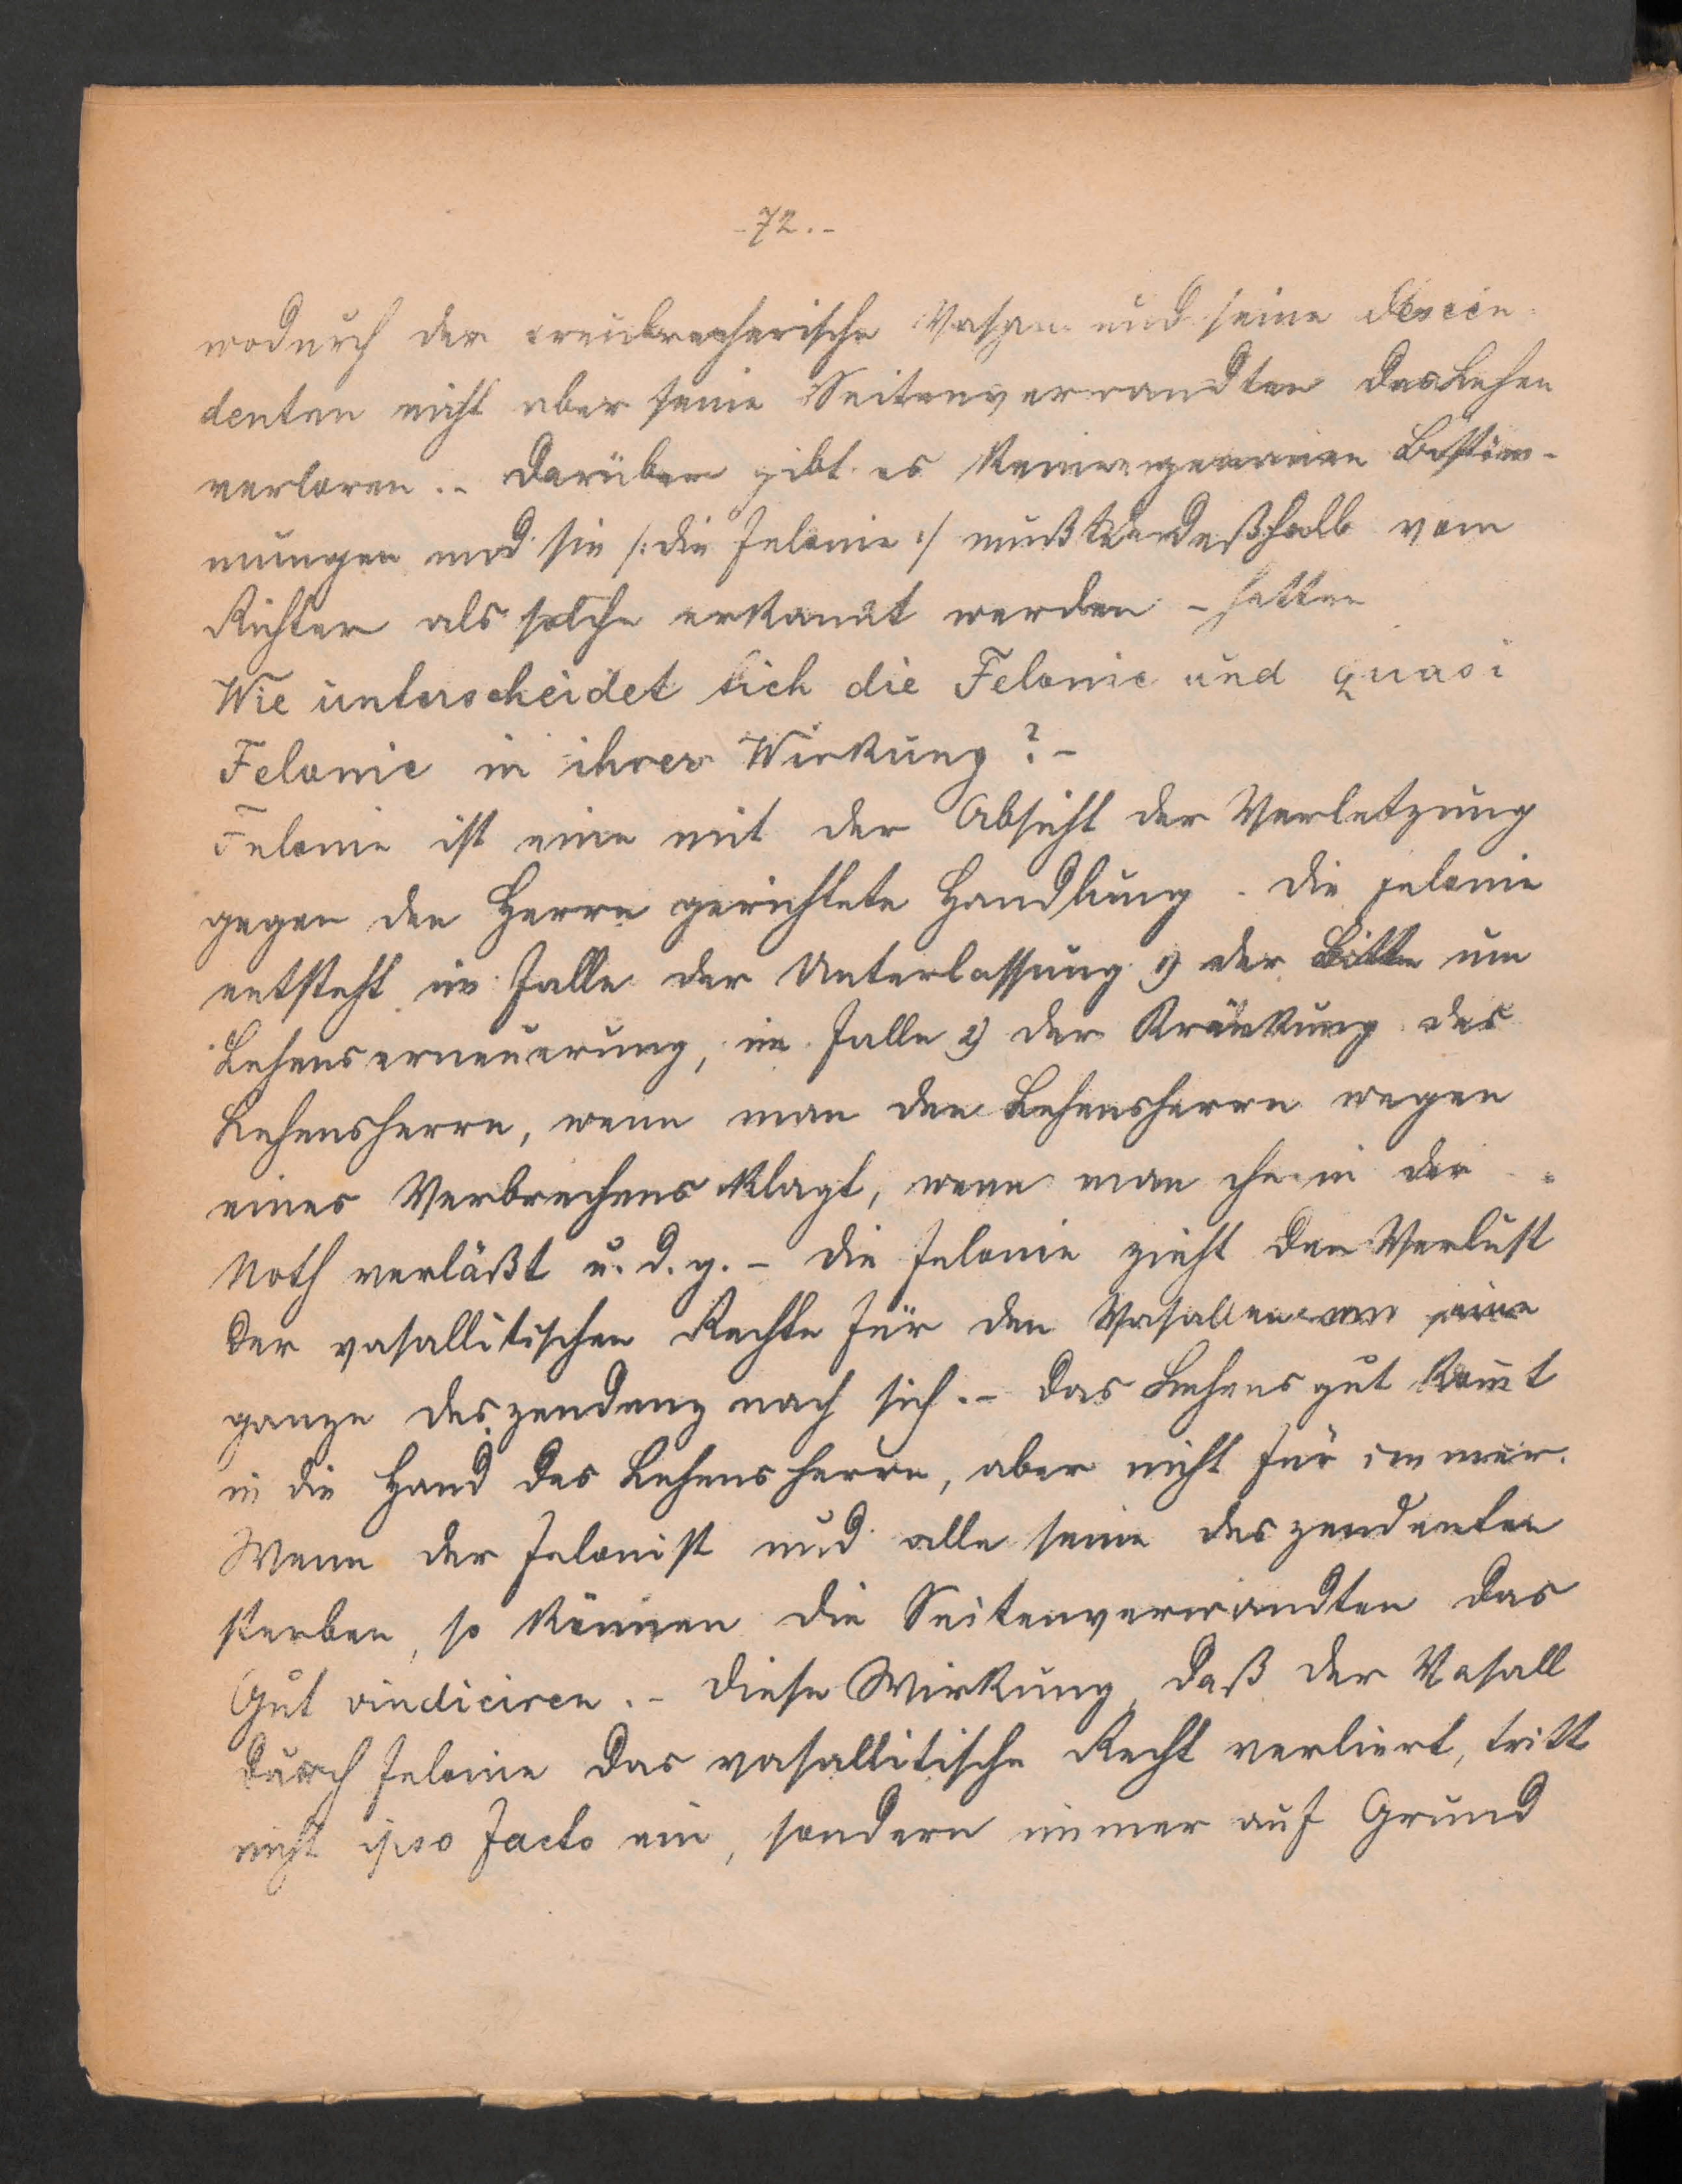 -72.-
wodurch der treubrecherische Vasall und seine Descen-
denten nicht aber seine Seitenverwandten das Lehen
verloren.- Darüber gibt es keine genauen Bestim-
mungen und sie /: die Felonie :/ mußte deßhalb vom
Richter als solche erkannt werden -
Wie unterscheidet sich die Felonie und quasi
Felonie in ihrer Wirkung? -
Felonie ist eine mit der Absicht der Verletzung
gegen den Herrn gerichtete Handlung. Die Felonie
entsteht im Falle der Unterlassung 1) der Bitte um
Lehenserneuerung, im Falle 2) der Kränkung des
Lehensherrn, wenn man den Lehensherrn wegen
eines Verbrechens klagt, wenn man ihn in der
Noth verläßt u. d. g. - Die Felonie zieht den Verlust
der vasallitischen Rechte für den Vasallen und seine
ganze Deszendenz nach sich. - Das Lehensgut kom̄t
in die Hand des Lehensherrn, aber nicht für immer.
Wenn der Felonist und alle seine Deszendenten
sterben, so können die Seitenverwandten das
Gut vindiciren. - Diese Wirkung, daß der Vasall
durch Felonie das vasallitische Recht verliert, tritt
nicht ipso facto ein, sondern immer auf Grund